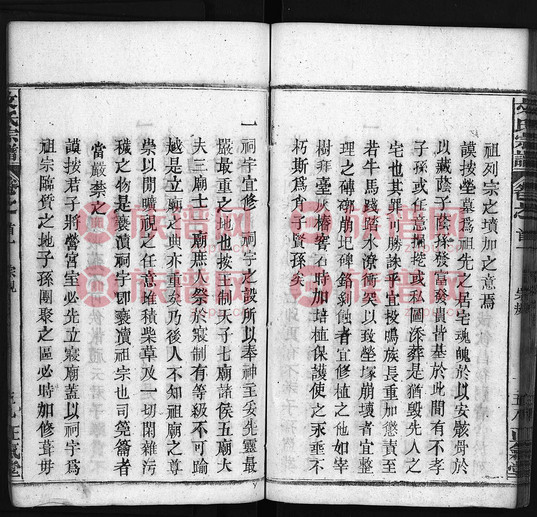 祖列宗之墳加之意焉
謨按塋墓爲祖先之居宅魂魄於以安骸骨於
以藏蔭子蔭孫發富發貴皆基於此間有不孝
子孫或任意掘挖或私圖添葬是猶毀先人之
宅也其罪可勝誅乎宜投鳴族長重加懲責至
若牛馬踐踏水潦衝突以致塋塚崩壞者宜整
理之磚砌崩圮碑銘剝蝕者宜修植之他如宰
樹拜臺灰椿窨石時加培植保護使之永垂不
朽斯爲肖子賢孫矣
一祠宇宜修 祠宇之設所以奉神主妥先靈最
嚴最重之地也按王制天子七廟諸侯五廟大
夫三廟士一廟庶人祭於寢制有等級不可踰
越是立廟之典亦重矣乃後人不知祖廟之尊
崇以閒曠視之任意堆積柴草及一切閑雜污
穢之物是褻瀆祠宇卽褻瀆祖宗也司筦鑰者
當嚴禁之
謨按君子將營宮室必先立寢廟蓋以祠宇爲
祖宗臨質之地子孫團聚之區必時加修葺毋
氏宗譜
卷之首
正氣堂
族譜网